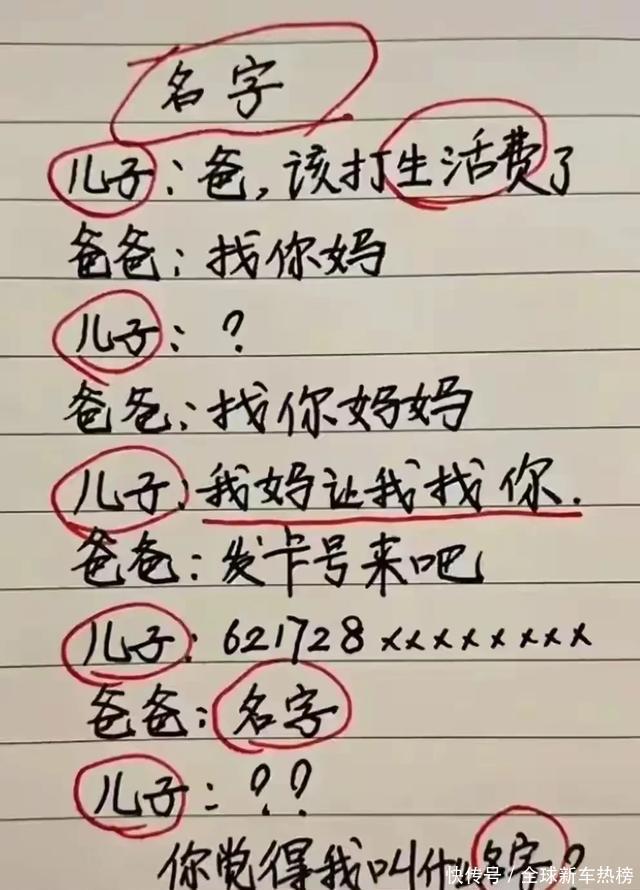 名字
儿子：爸，该打生活费了
爸爸：找你妈
儿子：？
爸爸：找你妈妈
儿子：我妈让我找你.
爸爸：发卡号来吧
儿子：621728xxxxxxxx
爸爸：名字
儿子：？？
你觉得我叫什么名字？
快传号／全球新车热榜